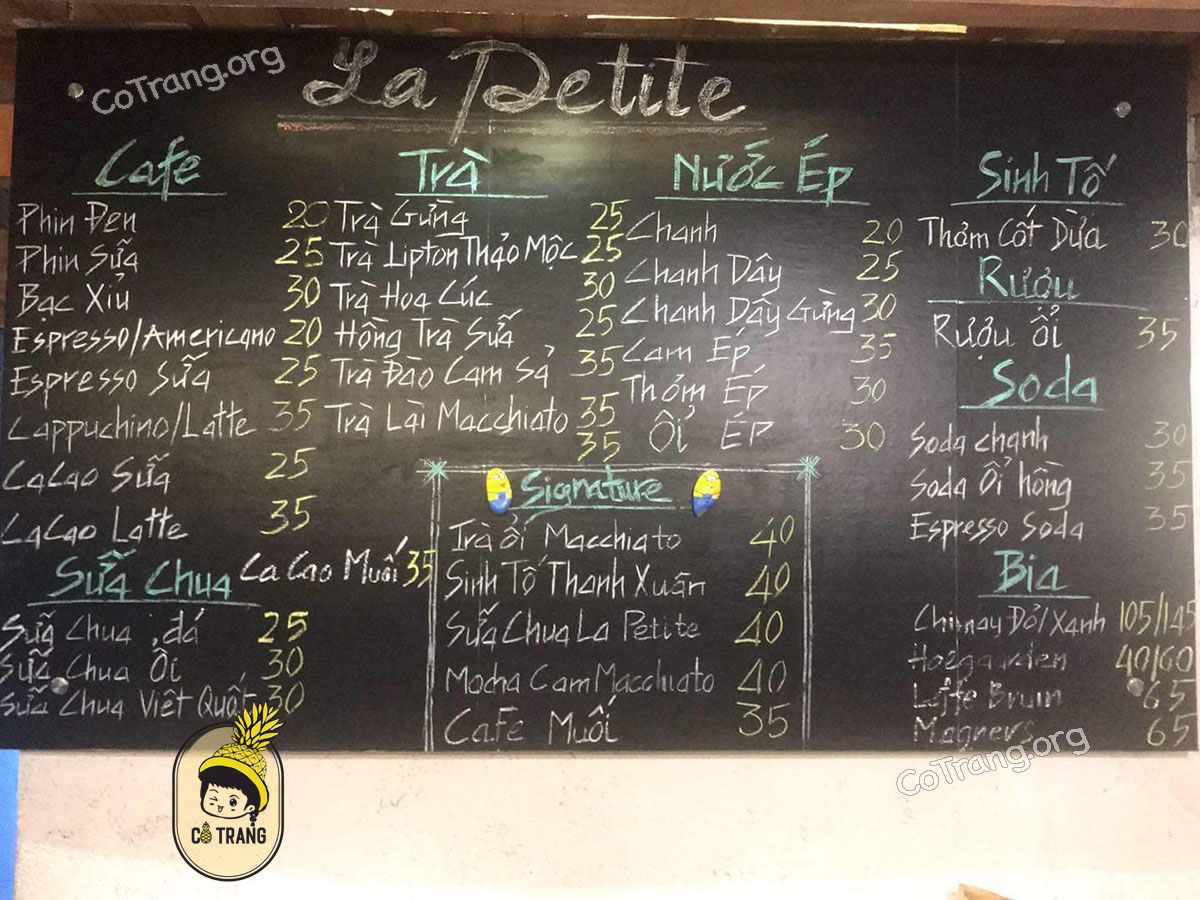 CoTrang.org
La Petite
Cafe
Phin Đen 20
Phin Sữa 25
Bạc Xỉu 30
Espresso/Americano 20
Espresso Sữa 25
Cappuchino/Latte 35
CaCao Sữa 25
CaCao Latte 35
Ca Cao Muối 35
Sữa Chua
Sữa Chua, đá 25
Sữa Chua Ổi 30
Sữa Chua Việt Quất 30
Trà
Trà Gừng 25
Trà Lipton Thảo Mộc 25
Trà Hoa Cúc 30
Hồng Trà Sữa 25
Trà Đào Cam Sả 35
Trà Lài Macchiato 35
35
Nước Ép
Chanh 20
Chanh Dây 25
Chanh Dây Gừng 30
Cam Ép 35
Thơm Ép 30
Ổi Ép 30
Signature
Trà ổi Macchiato 40
Sinh Tố Thanh Xuân 40
Sữa Chua La Petite 40
Mocha Cam Macchiato 40
Cafe Muối 35
Sinh Tố
Thơm Cốt Dừa 30
Rượu
Rượu ổi 35
Soda
Soda chanh 30
Soda Ổi hồng 35
Espresso Soda 35
Bia
Chimay Đỏ/Xanh 105/145
Hoegaarden 40/60
Leffe Bruin 65
Magners 65
CoTrang.org
CÔ TRANG